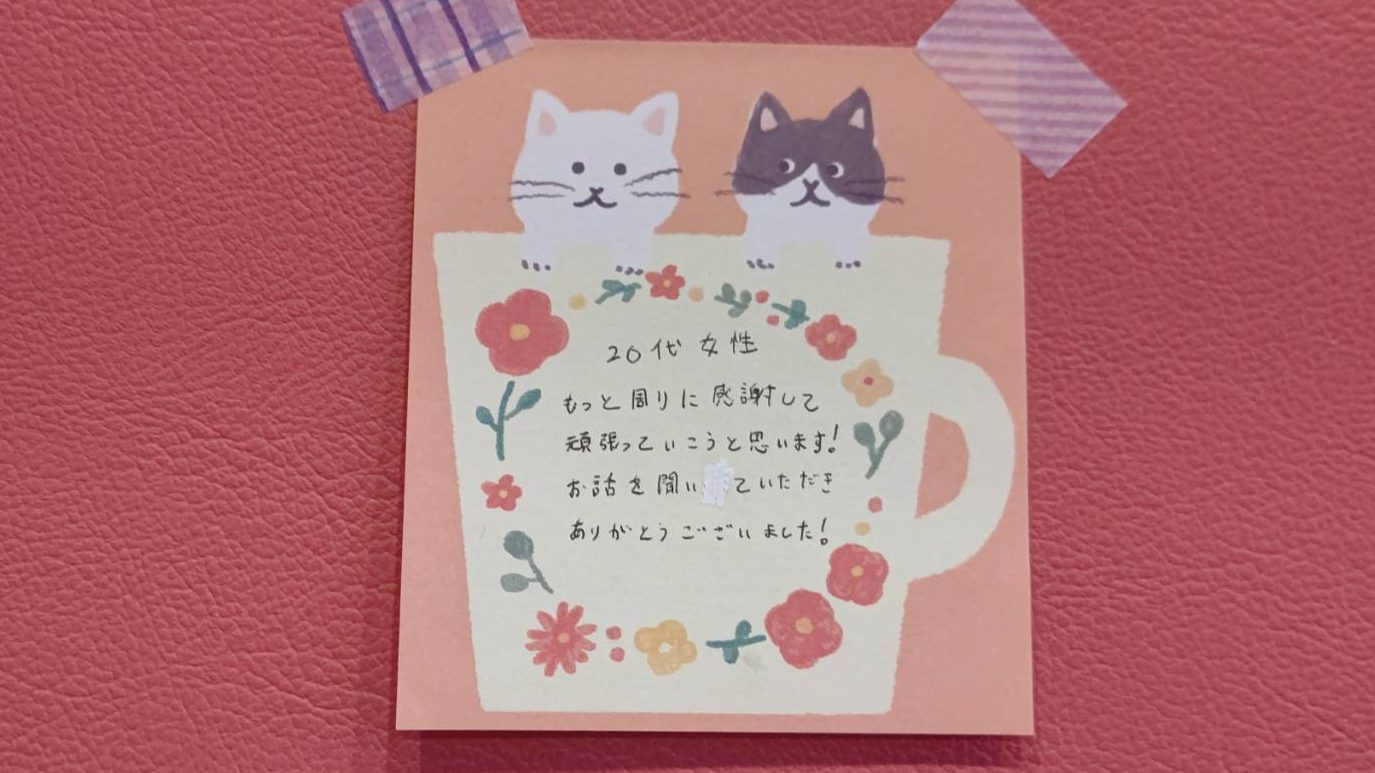 20代 女性
もっと周りに感謝して
頑張っていこうと思います!
お話を聞いていただき
ありがとうございました!